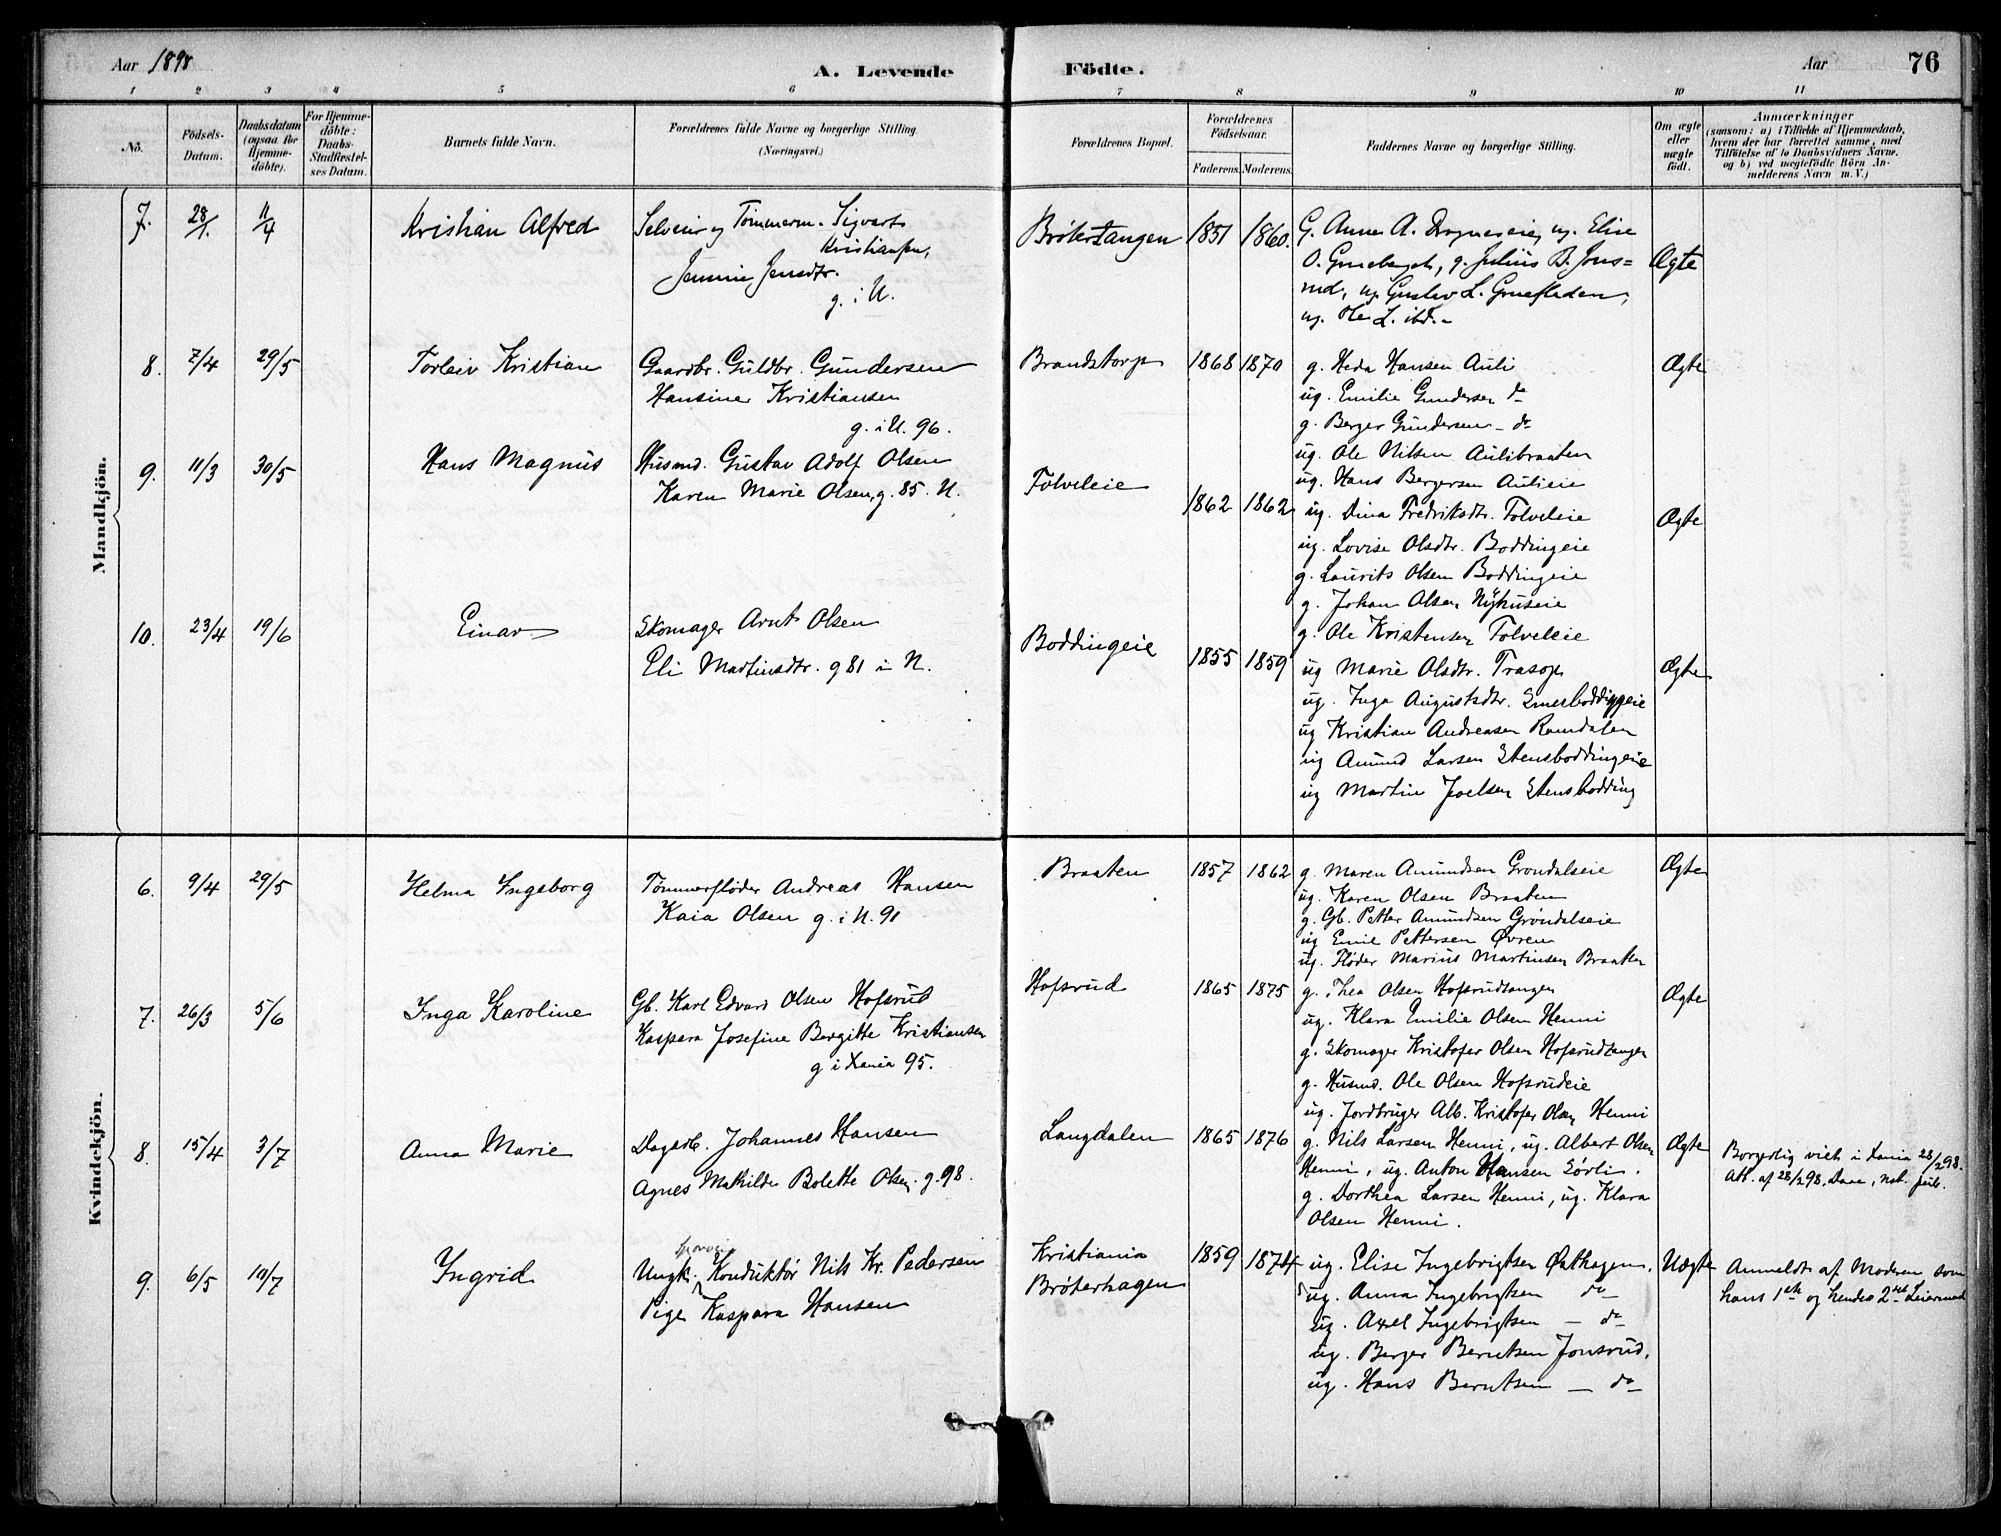 Aar 1898
A. Levende Födte.
Aar
76
1 2 3 4 5 6 7 8 9 10 11
No.
Födsels-Datum.
Daabsdatum (ogsaa for Hjemme-döbte).
For Hjemme-döbte: Daabs-Stadfæstel-ses Datum.
Barnets fulde Navn.
Forældrenes fulde Navne og borgerlige Stilling. (Næringsvei.)
Forældrenes Bopæl.
Forældrenes Födselsaar.
Faderens. Moderens.
Faddernes Navne og borgerlige Stilling.
Om ægte eller uægte födt.
Anmærkninger
(saasom: a) i Tilfælde af Hjemmedaab, hvem der har forrettet samme, med Tilföielse af to Daabsvidners Navne, og b) ved uægtefödte Börn An-melderens Navn m. V.)
Mandkjön.
7. 28/1. 11/4 Kristian Alfred
Selveier og Tömmerm. Sigvart
Kristiansen,
Jennie Jensdtr.
g. i U.
Brötertangen 1851 1860.
G. Anne A. Dragneseie, ug. Elise
O. , g. Julius B. Jons=
rud, ug. Gustav L.
ug. Ole L. ibd.-
Ægte
8. 7/4 29/5 Torleiv Kristian
Gaardbr. Guldbr. Gundersen
Hansine Kristiansen
g. i U. 96.
Brandstorp 1868 1870
g. Heda Hansen Auli
ug. Emilie Gundersen do
g. Berger Gundersen - do
ug. Ole Nilsen Aulibraaten
ug. Hans Bergersen Aulieie
Ægte
9. 11/3 30/5 Hans Magnus
Husmd. Gustav Adolf Olsen
Karen Marie Olsen, g. 85. N.
Tolveleie 1862 1862
ug. Dina Fredriksdtr. Tolveleie
ug. Lovise Olsdtr. Boddingeie
g. Laurits Olsen Boddingeie
g. Johan Olsen Nyhuseie
g. Ole Kristensen Tolveleie
Ægte
10. 23/4 19/6 Einar
Skomager Arnt Olsen
Eli Martinsdtr. g 81 i N.
Boddingeie 1855 1859
ug Marie Olsdtr. Trasop
ug. Inga Augustsdtr. Smesboddingeie
ug Kristian Andreasen Ramdalen
ug Amund Larsen Stensboddingeie
ug Martin Joelsen Stensbodding
Ægte
Kvindekjön.
6. 9/4 29/5 Helma Ingeborg
Tömmerfløder Andreas Hansen
Kaia Olsen g. i N. 91
Braaten 1857 1862
g. Maren Amundsen Gröndalseie
ug. Karen Olsen Braaten
g. Gb. Petter Amundsen Gröndalseie
ug Emil Pettersen Øvren
ug. Fløder Marius Martinsen Braaten
Ægte
7. 26/3 5/6 Inga Karoline
Gb. Karl Edvard Olsen Hofsrud
Kaspara Josefine Bergitte Kristiansen
g i Xania 95.
Hofsrud 1865 1875
g. Thea Olsen Hofsrudtangen
ug. Klara Emilie Olsen Henni
g. Skomager Kristofer Olsen Hofsrudtangen
g. Husmd. Ole Olsen Hofsrudeie
ug. Jordbruger Alb. Kristofer Olsen Henni
Ægte
8. 15/4 3/7 Anna Marie
Dagarb. Johannes Hansen
Agnes Mathilde Bolette Olsen. g. 98.
Langdalen 1865 1876
g. Nils Larsen Henni, ug. Albert Olsen
Henni, ug. Anton Hansen Sörli.
g. Dorthea Larsen Henni, ug. Klara
Olsen Henni.
Ægte
Borgerlig viet i Xania 28/2 98.
Att. af 28/2 98. Daae, not. pub.
9. 6/5 10/7 Ingrid
sporvei
Ungk. Konduktör Nils Kr. Pedersen
Pige Kaspara Hansen
Kristiania
Bröterhagen
1859 1874
ug. Elise Ingebrigtsen Østhagen.
ug. Anna Ingebrigtsen do
ug. Axel Ingebrigtsen - do
ug. Berger Berntsen Jonsrud.
ug. Hans Berntsen - do
Uægte
Anmeldt af Moderen som
hans 1ste og hendes 2det Leiermaal